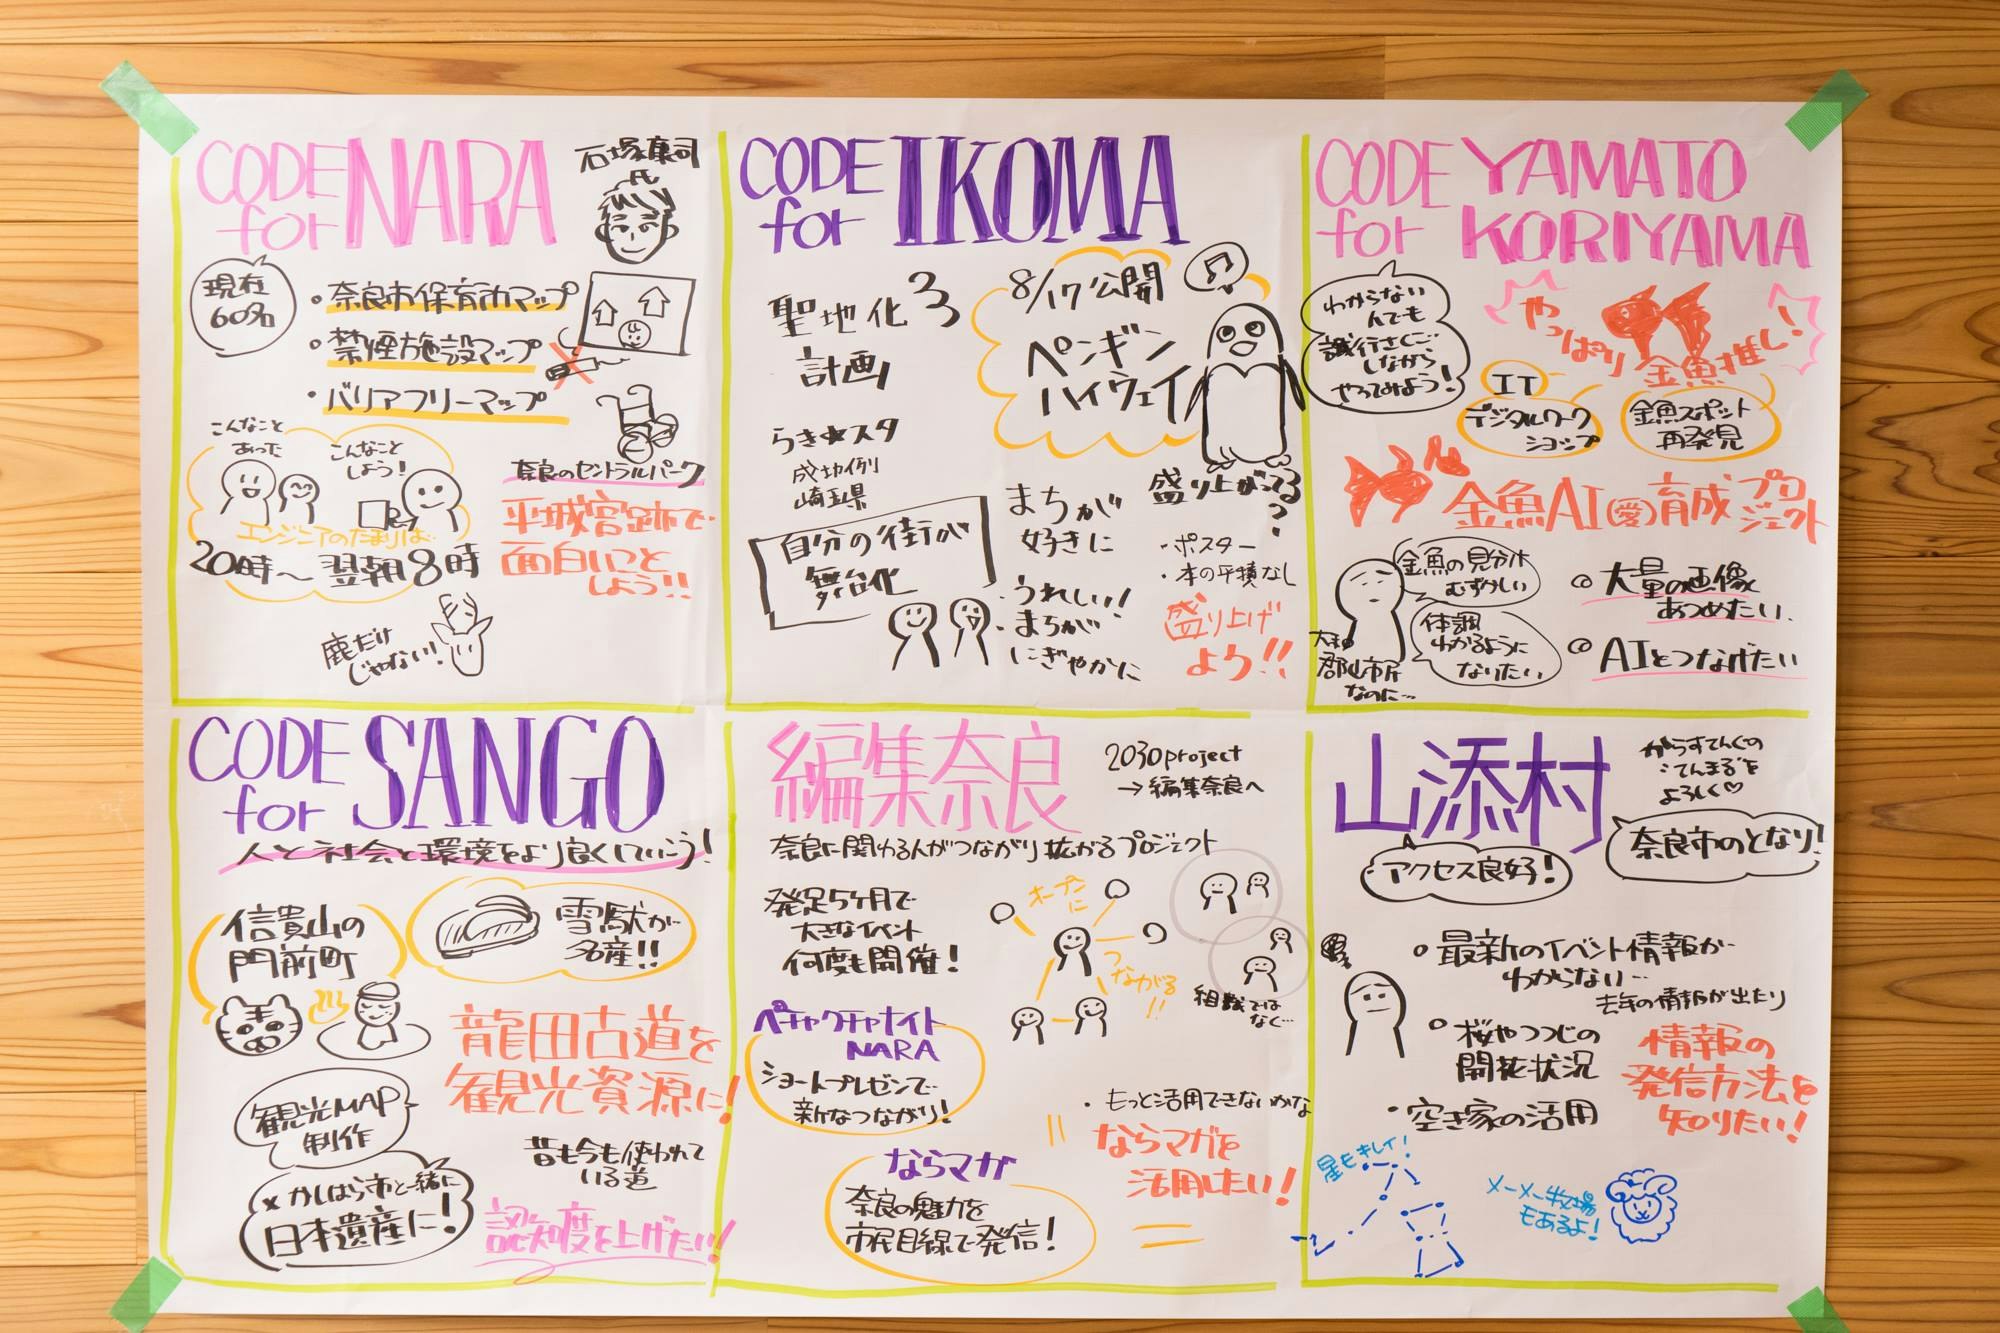 CODE
for NARA
石塚
氏
現在
60名
・奈良市保育所マップ
・禁煙施設マップ
・バリアフリーマップ
こんなこと
あった
こんなこと
しよう!
エンジニアのたまりは…
20時~翌朝8時
奈良のセントラルパーク
平城宮跡で
面白いこと
しよう!!
鹿だけ
じゃない!
CODE
for IKOMA
聖地化
計画
3
8/17公開
ペンギン
ハイウェイ
らき★スタ
成功例
埼玉県
自分の街が
舞台化
まちが
好きに
・うれしい!
・まちが
にぎやかに
盛り上がってる?
・ポスター
・本の平積なし
盛り上げ
よう!!
CODE YAMATO
for KORIYAMA
わからない
んでも
試行さくご
しながら
やってみよう!
やっぱり金魚推し!
IT
デジタルワーク
ショップ
金魚スポット
再発見
金魚AI(愛)育成プロジェクト
金魚の見分け
むずかしい
体調
わかるように
なりたい
大和
郡山市民
なのに…
大量の画像
あつめたい
AIとつなげたい
CODE
for SANGO
人と社会と環境をより良くしていこう!
信貴山の
門前町
雪駄が
名産!!
龍田古道を
観光資源に!
観光MAP
制作
×かしはら市と一緒に
日本遺産に!
昔も今も使われて
いる道
認知度を上げたい!
編集奈良
2030project
→編集奈良へ
奈良に関わる人がつながり拡がるプロジェクト
発足5ヶ月で
大きなイベント
何度も開催!
オープンに
つながる!!
組織では
なく…
ペチャクチャナイト
NARA
ショートプレゼンで
新なつながり!
ならマガ
奈良の魅力を
市民目線で発信!
・もっと活用できないかな
ならマガを
活用したい!
山添村
からすてんぐの
"てんまる"を
よろしく♡
アクセス良好!
奈良市のとなり!
最新のイベント情報が
わからない…
去年の情報が出たり
桜やつつじの
開花状況
・空き家の活用
情報の
発信方法を
知りたい!
星もキレイ!
メーメー牧場
もあるよ!